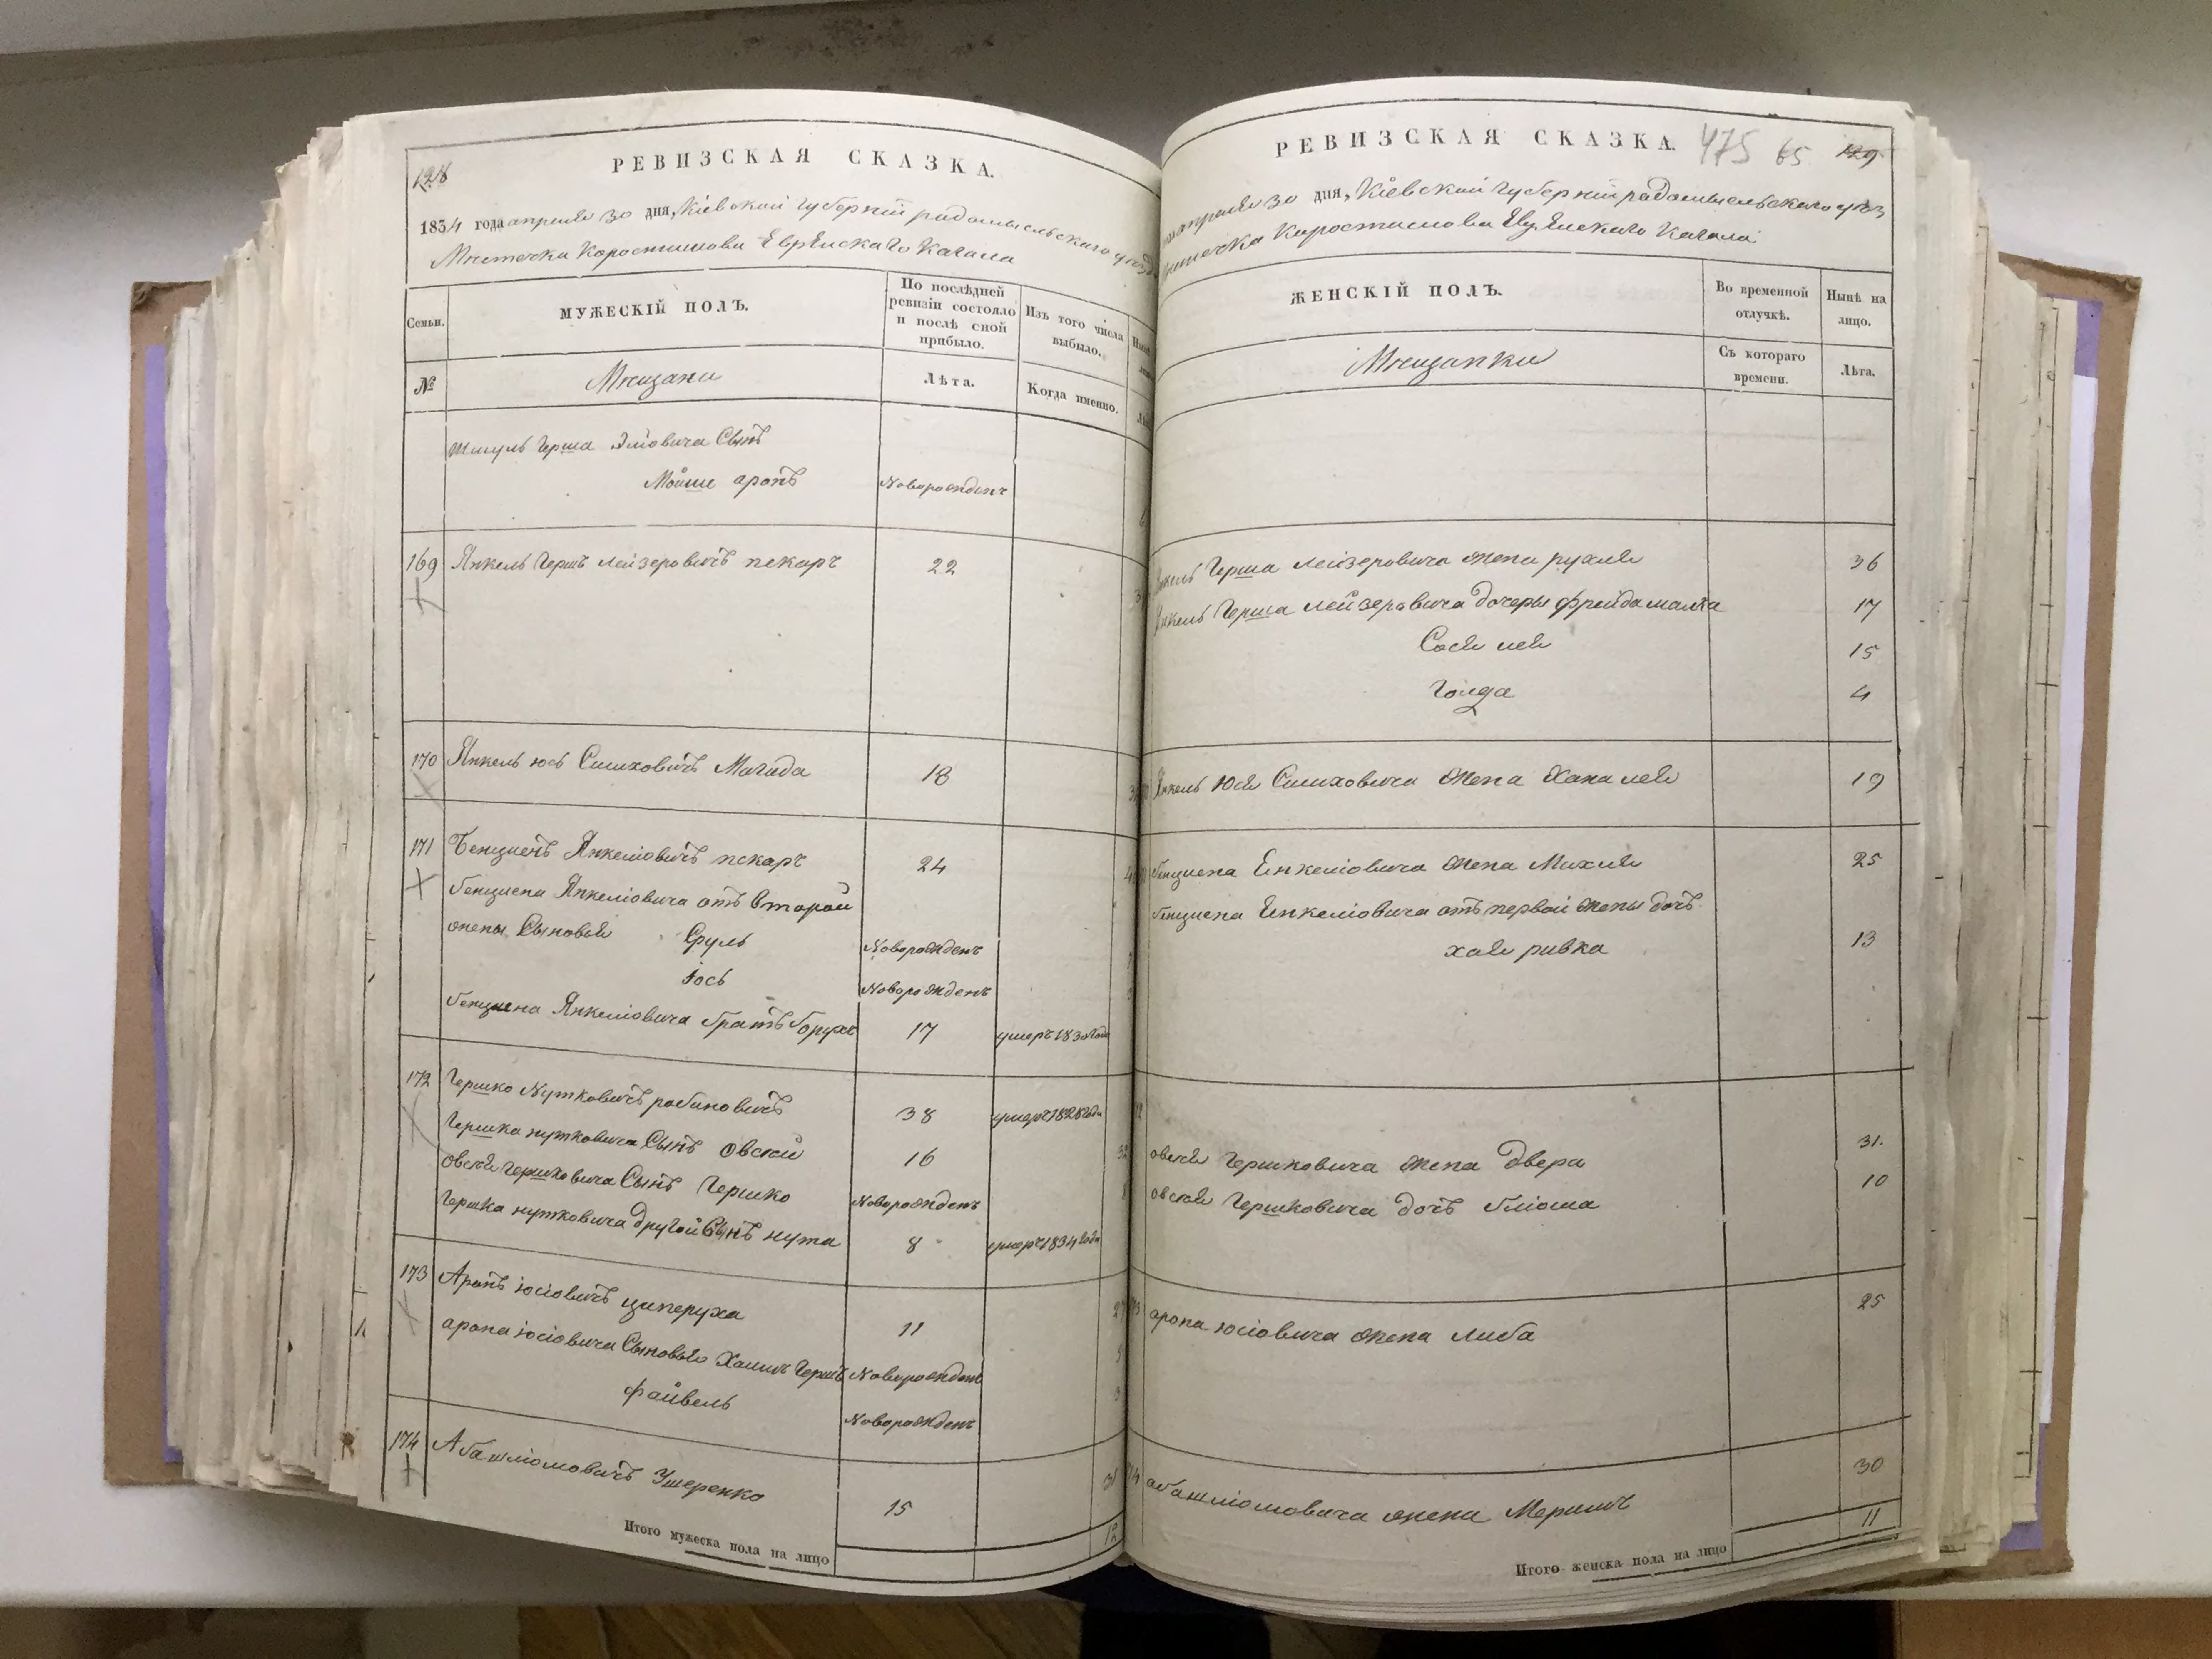 128
РЕВИЗСКАЯ СКАЗКА.
1834 года апреля 30 дня, Кіевской губерніи радомысльскаго
Мистечка Коростишова Еврейскаго Кагала
Семьи.
МУЖЕСКІЙ ПОЛЪ.
По послѣдней ревизіи состояло и послѣ оной прибыло.
Изъ того числа выбыло.
№
Мещане
Лѣта.
Когда именно.
Шмуль Герша Сынъ
Мойше аронъ Новорожденъ
169 Янкель Гершъ Лейзеровичъ пекаръ 22
170 Янкель юсь Симховичъ Магида 18
171 Бенциенъ Янкеліовичъ пекаръ 24
бенциена Янкеліовича отъ второй
жены Сыновья Сруль Новорожденъ
Іось Новорожденъ
бенциена Янкеліовича братъ борухъ 17 умеръ 1830 года
172 Гершко Нутковичъ рабиновичъ 38 умеръ 1828 года
Гершка нутковича Сынъ Овсей 16
овсея Гершковича Сынъ Гершко Новорожденъ
Гершка нутковича другой Сынъ нута 8 умеръ 1834 года
173 Аронъ юсіовичъ циперуха 11
арона юсіовича Сыновья Хаимъ Гершъ Новорожденъ
файвель Новорожденъ
174 Аба шліомовичъ Ушеренко 15
Итого мужеска пола на лицо
РЕВИЗСКАЯ СКАЗКА.
475 65 129
апреля 30 дня, Кіевской губерніи радомысльскаго
Коростишова Еврейскаго Кагала
ЖЕНСКІЙ ПОЛЪ.
Во временной отлучкѣ.
Нынѣ на лицо.
Мещанки
Съ котораго времени.
Лѣта.
Янкель Герша Лейзеровича жена рухля 36
Янкель Герша Лейзеровича дочеры фрейда малка 17
Сося лея 15
Голда 4
Янкель Юся Симховича жена Хана лея 19
бенциена Енкеліовича жена Михля 25
бенциена Енкеліовича отъ первой жены дочъ
хая ривка 13
овсея Гершковича жена Двера 31.
овсея Гершковича дочъ бліома 10
арона юсіовича жена Либа 25
аба шліомовича жена 30
Итого женска пола на лицо 11